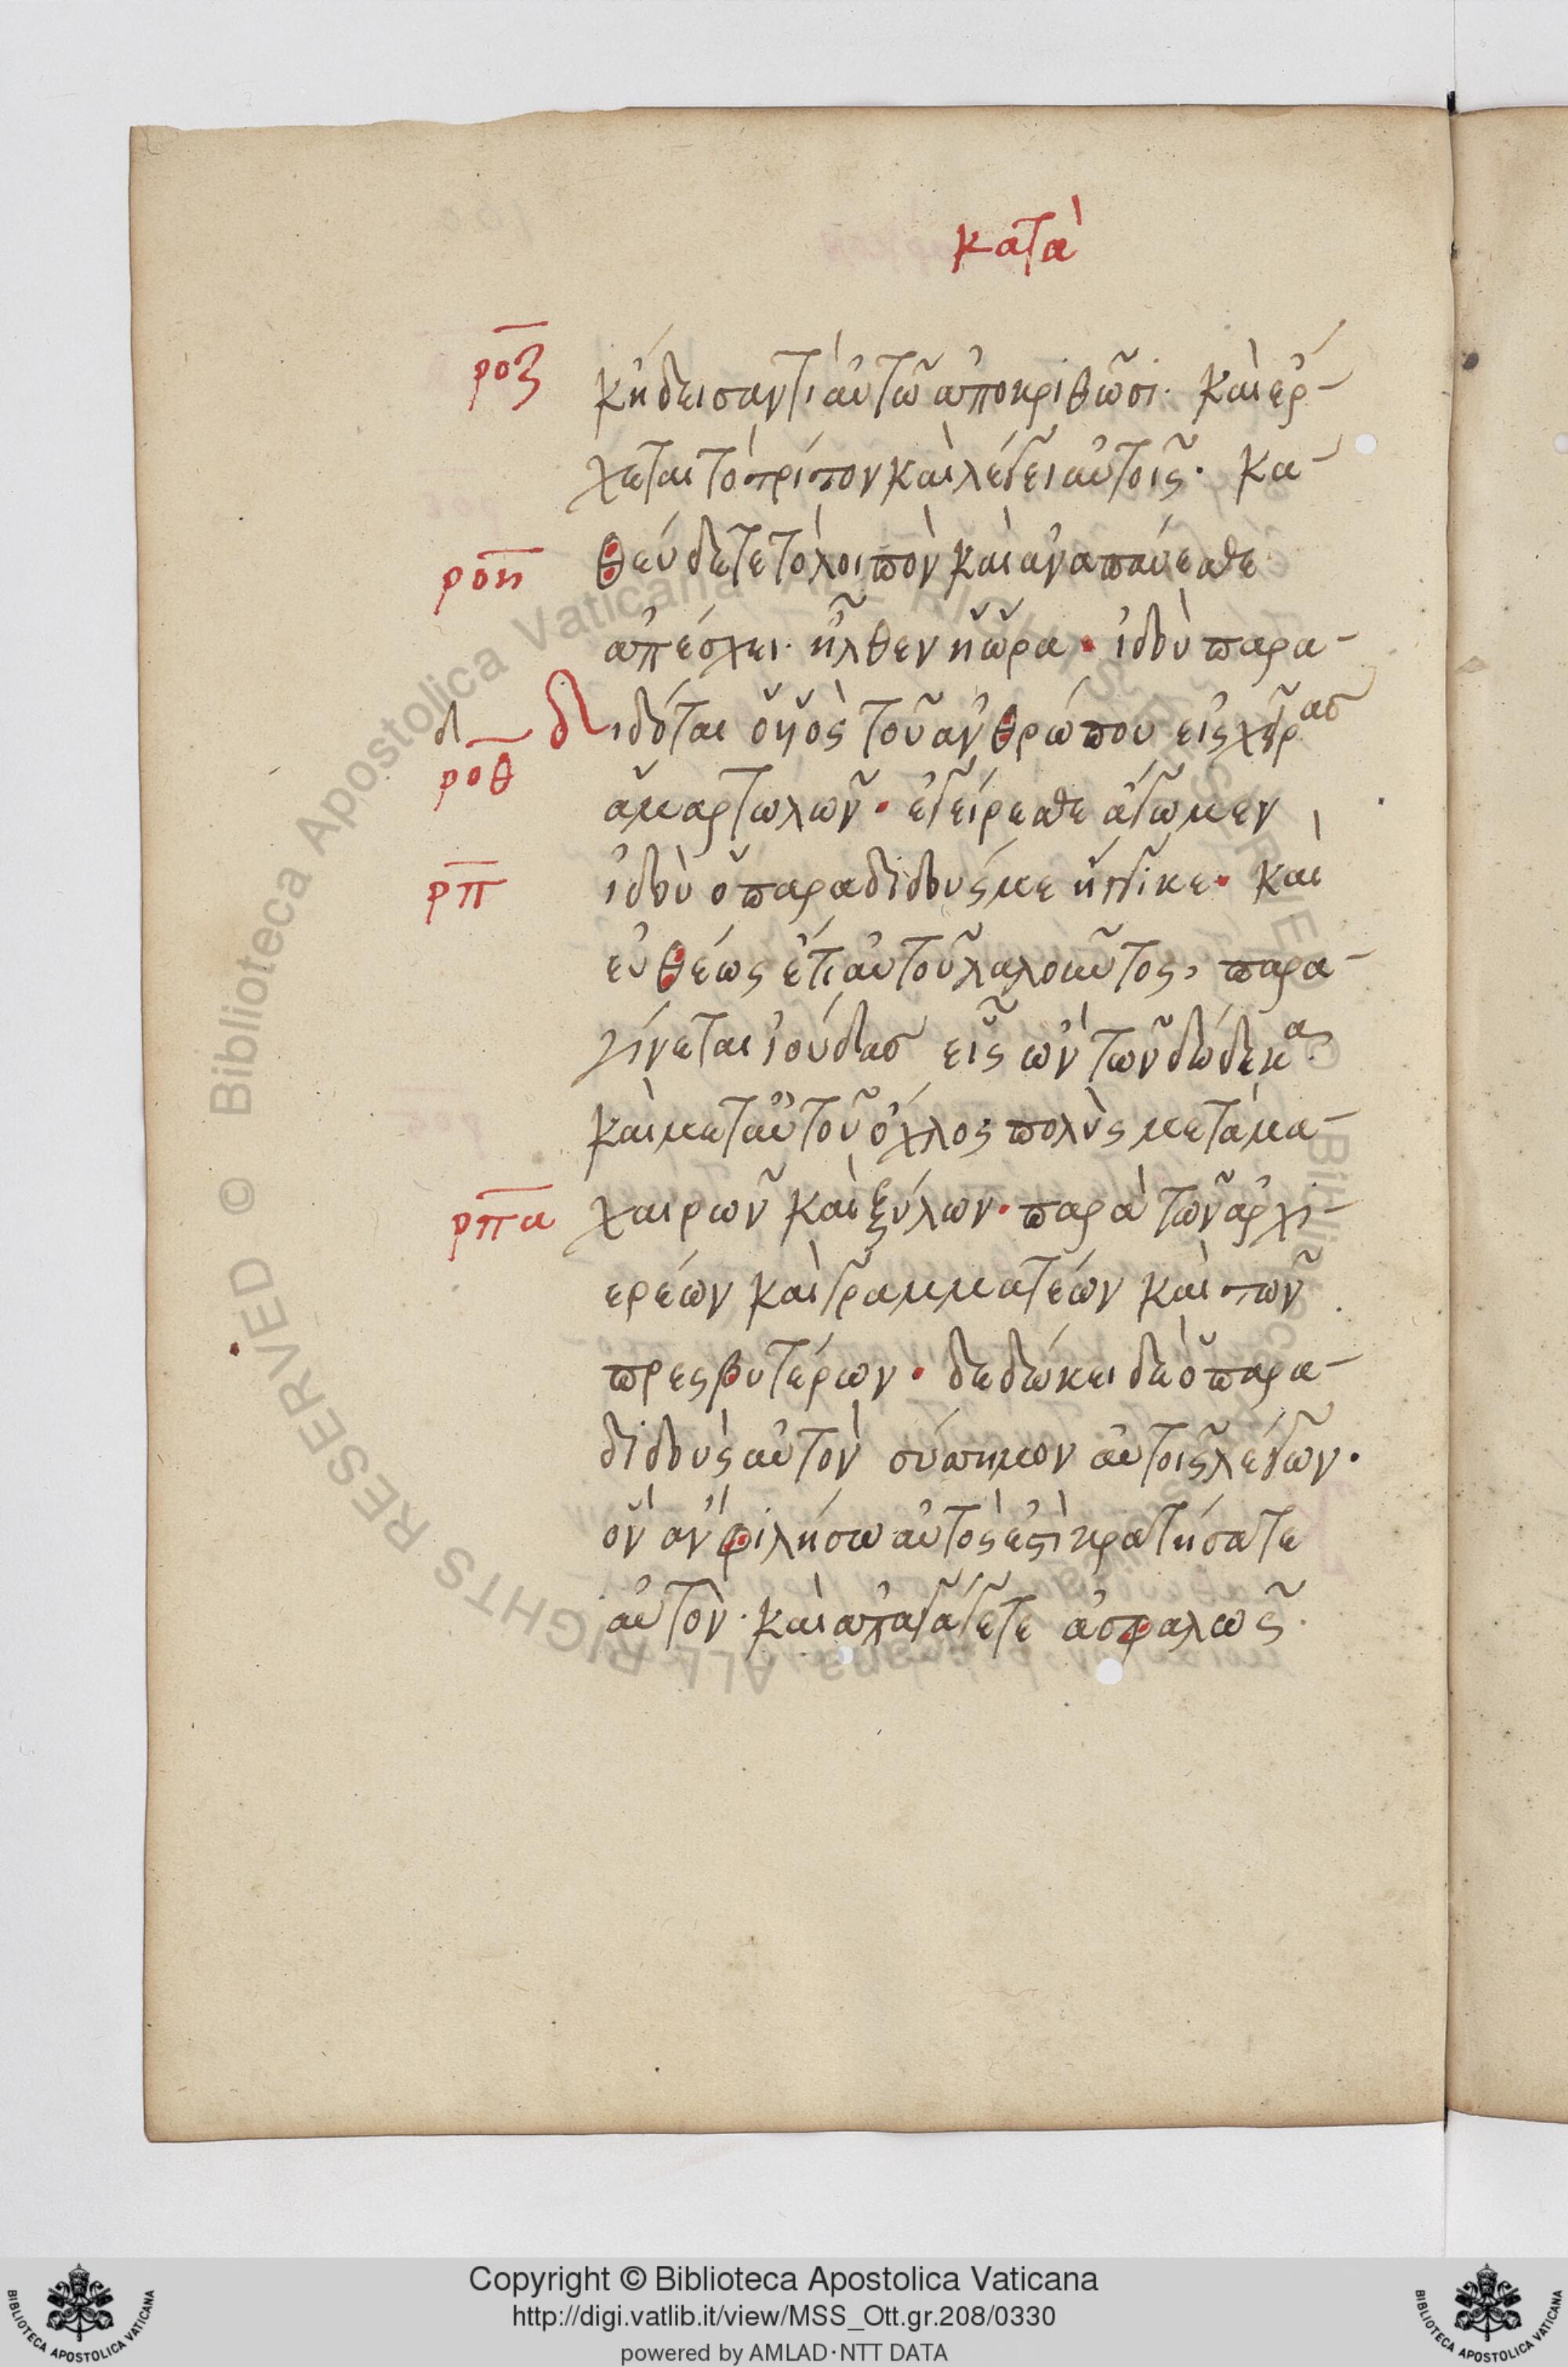 κατὰ
ροζ
κήδεισαν τὶ αὐτῶ ἀποκριθῶσι· καὶ ἐρ-
χεται τὸ τρίτον καὶ λέγει αὐτοῖς· κα-
ροη
θεύδετε τὸ λοιπὸν καὶ ἀναπαύεσθε
ἀπέσχει· ἦλθεν ἡ ὥρα· ἰδοὺ παρα-
δ
διδόται ὁ υἱὸς τοῦ ἀνθρώπου εἰς χεῖρας
ροθ
ἁμαρτωλῶν· ἐγείρεσθε ἄγωμεν
ρπ
ἰδοὺ ὁ παραδιδούς με ἤγγικε· καὶ
εὐθέως ἔτι αὐτοῦ λαλοῦντος, παρα-
γίνεται ἰούδας εἷς ὢν τῶν δώδεκα
καὶ μετ αὐτοῦ ὄχλος πολὺς μετὰ μα-
ρπα
χαιρῶν καὶ ξύλων· παρὰ τῶν ἀρχι-
ερέων καὶ γραμματέων καὶ τῶν
πρεσβυτέρων· δεδώκει δὲ ὁ παρα-
διδοὺς αὐτὸν σύσημον αὐτοῖς λέγων·
ὃν ἂν φιλήσω αὐτός ἐστὶ κρατήσατε
αὐτὸν· καὶ ἀπαγάγετε ἀσφαλῶς·
© Biblioteca Apostolica Vaticana ALL RIGHTS RESERVED
Copyright © Biblioteca Apostolica Vaticana
http://digi.vatlib.it/view/MSS_Ott.gr.208/0330
powered by AMLAD·NTT DATA
BIBLIOTECA APOSTOLICA VATICANA
BIBLIOTECA APOSTOLICA VATICANA